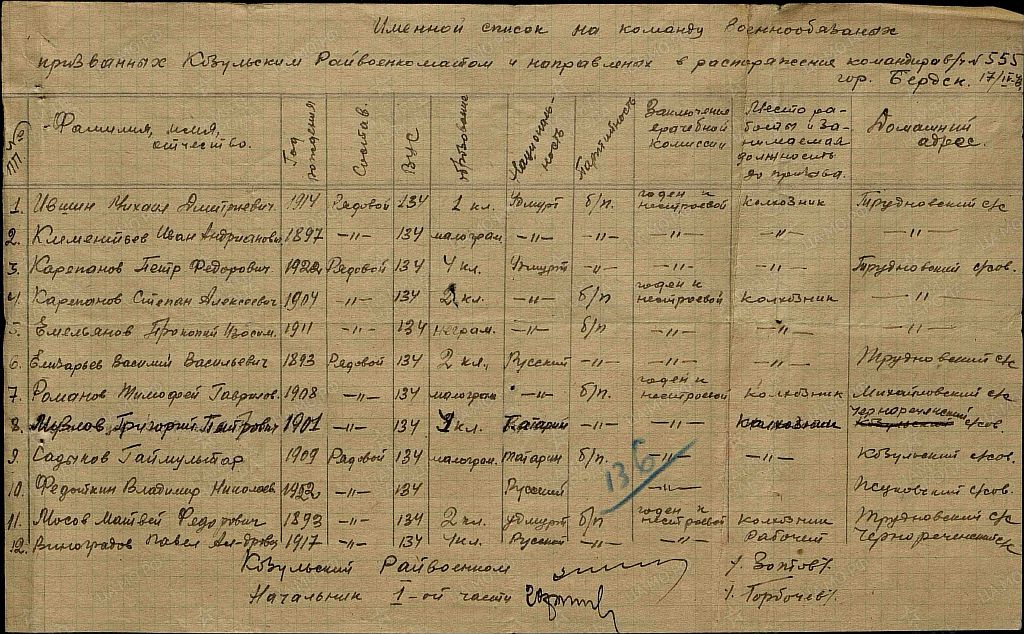 Именной список на команду военнообязаных
призванных Кзульским Райвоенкоматом и направленых в распоряжение командира в/ч № 555
гор. Бердск. 17/IV-
№ пп Фамилия, имя, отчество. Год рождения Состав. ВУС Образование Национальность Партийность Заключение врачебной комиссии Место работы и занимаемая должность до призыва. Домашний адрес.
1. Ившин Михаил Дмитриевич 1914 Рядовой 134 1 кл. Удмурт б/п. годен к нестроевой колхозник Трудновский с/с
2. Клементьев Иван Андрианович 1897 -"- 134 малограм. -"- -"- -"- -"- -"-
3. Карепанов Петр Федорович Рядовой 134 4 кл. Удмурт -"- -"- -"- Трудновский с/сов.
4. Карепанов Степан Алексеевич 1904 -"- 134 2 кл. -"- б/п годен к нестроевой колхозник -"-
5. Емельянов Прокопий 1911 -"- 134 неграм. -"- б/п -"- -"- -"-
6. Елизарьев Василий Васильевич 1893 Рядовой 134 2 кл. Русский -"- -"- -"- Трудновский с/с
7. Романов Тимофей Гаврилов. 1908 -"- 134 малограм -"- б/п. годен к нестроевой колхозник Михайловский с/с
8. Григорий Петрович 1901 -"- 134 кл. Татарин -"- -"- колхозник Чернореченский Кзульский с/сов.
9. Садыков Гаймультар 1909 Рядовой 134 малограм. татарин б/п. -"- -"- Кзульский с/сов.
136
10. Федоткин Владимир Николаев. -"- 134 Русский -"- с/сов.
11. Мосов Матвей Федорович 1893 -"- 134 2 кл. удмурт б/п годен к нестроевой колхозник Трудновский с/с
12. Виноградов Павел Ал-дрович 1917 -"- 134 4 кл. Русский -"- -"- Рабочий Чернореченский с/с
Кзульский Райвоенком /Зоттов/
Начальник I-ой части /Горбочев/